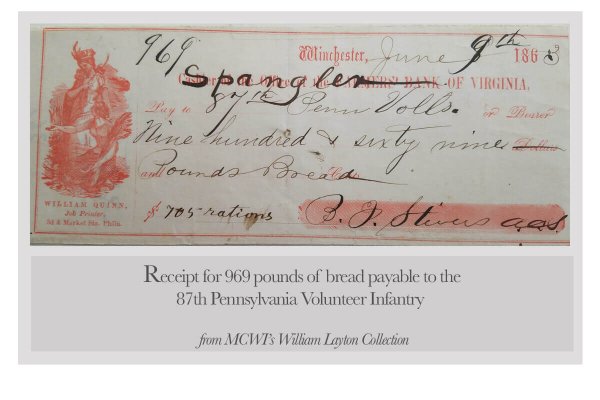 969
Winchester, June 9th 1863
Cashier of the Office of the FARMERS' BANK OF VIRGINIA,
Spangler
Pay to 87th Penn Volls. or Bearer
Nine hundred & sixty nine Dollars
and Pounds Bread
$ 705 rations
WILLIAM QUINN,
Job Printer,
3d & Market Sts. Phila.
Receipt for 969 pounds of bread payable to the
87th Pennsylvania Volunteer Infantry
from MCWT's William Layton Collection